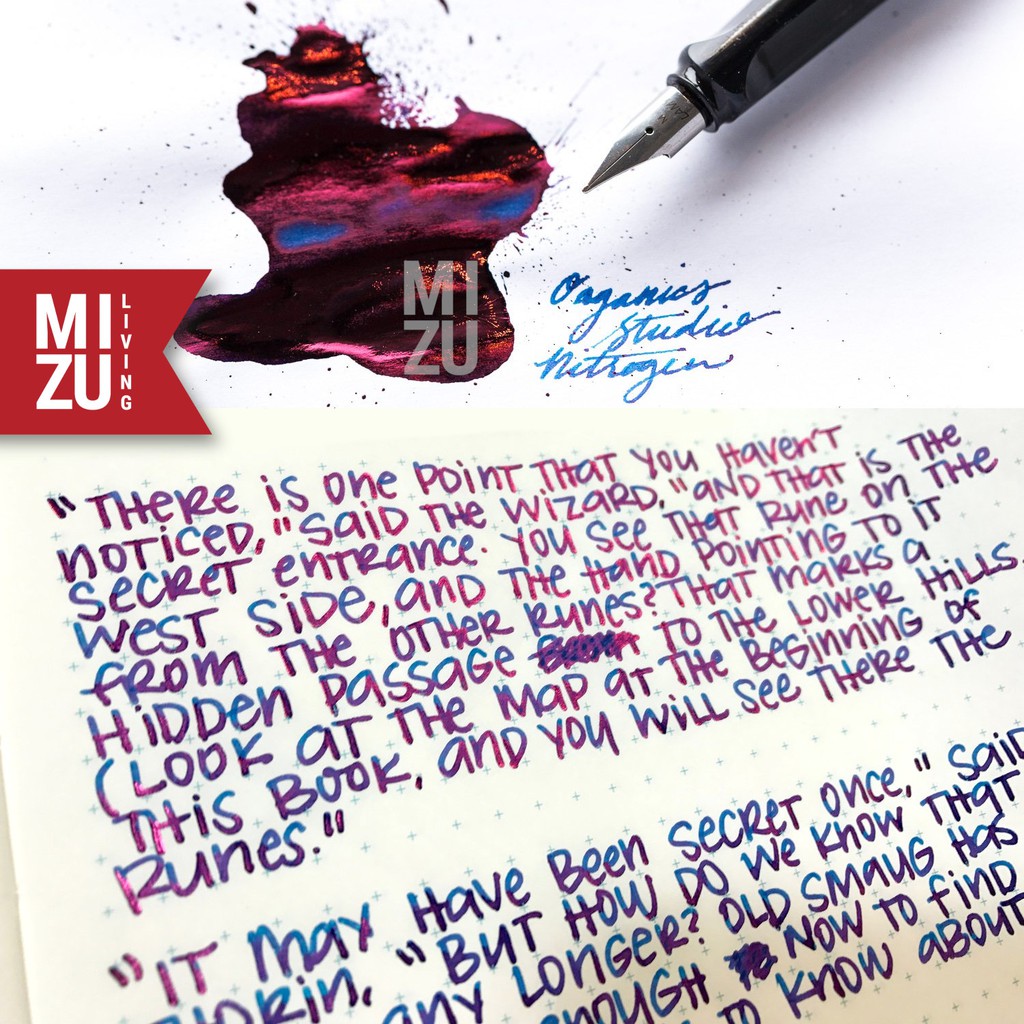 MIZU
LIVING
MIZU
Organics
Studio
Nitrogen
"THERE IS ONE POINT THAT YOU HAVEN'T
NOTICED," SAID THE WIZARD, "AND THAT IS THE
SECRET ENTRANCE. YOU SEE THAT RUNE ON THE
WEST SIDE, AND THE HAND POINTING TO IT
FROM THE OTHER RUNES? THAT MARKS A
HIDDEN PASSAGE TO THE LOWER HILLS.
(LOOK AT THE MAP AT THE BEGINNING OF
THIS BOOK, AND YOU WILL SEE THERE THE
RUNES."
"IT MAY HAVE BEEN SECRET ONCE," SAID
THORIN, "BUT HOW DO WE KNOW THAT
ANY LONGER? OLD SMAUG HAS
ENOUGH NOW TO FIND
TO KNOW ABOUT